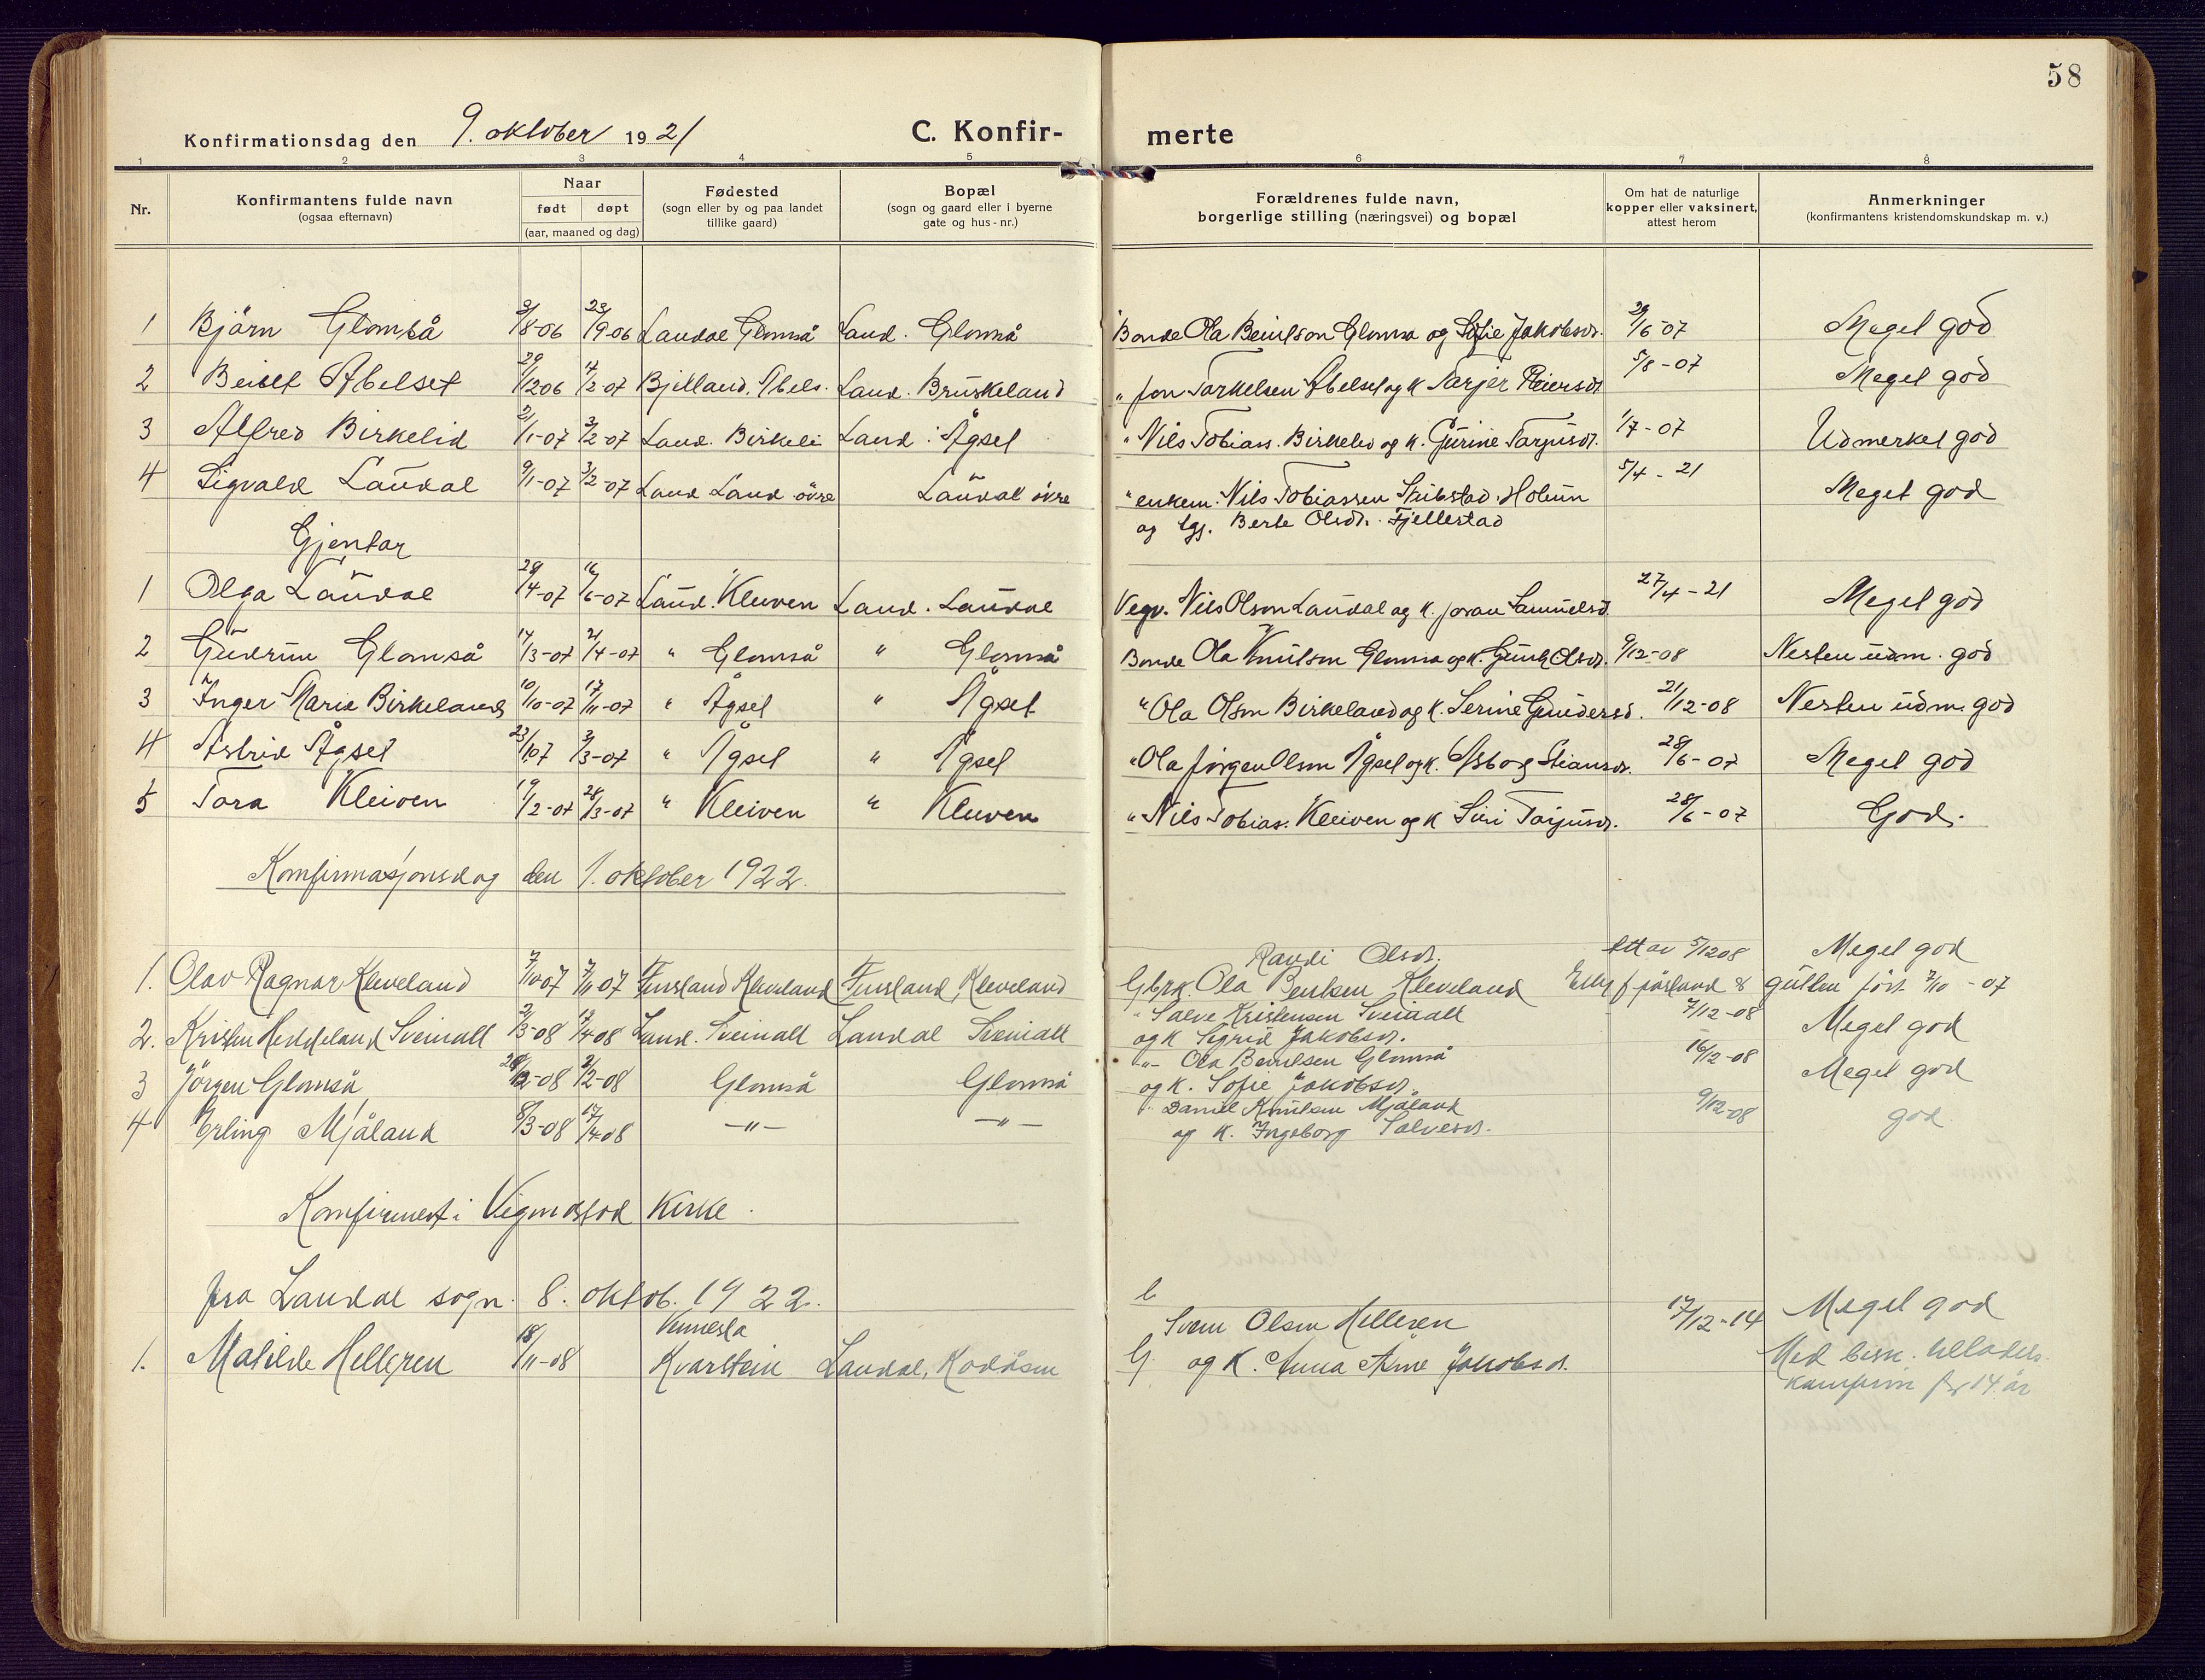 58
Konfirmationsdag den 9. oktober 1921 C. Konfir- merte
1 2 3 4 5 6 7 8
Nr. Konfirmantens fulde navn (ogsaa efternavn) Naar født døpt (aar, maaned og dag) Fødested (sogn eller by og paa landet tillike gaard) Bopæl (sogn og gaard eller i byerne gate og hus-nr.) Forældrenes fulde navn, borgerlige stilling (næringsvei) og bopæl Om hat de naturlige kopper eller vaksinert, attest herom Anmerkninger (konfirmantens kristendomskundskap m. v.)
1 Björn Glomså 2/8-06 23/9-06 Laudal Glomså Laud. Glomså Bonde Ola Beintson Glomsa og Sofie Jakobsdr. 29/6-07 Meget god
2 Beint Abelset 29/12 06 17/2-07 Bjelland, Abels. Laud. Bruskeland " Jon Tarkelsen Abelset og k Tarjer Reiersdr. 5/8-07 Meget god
3 Alfred Birkelid 2/1-07 3/2-07 Laud. Birkeli Laud. Ågsel " Nils Tobiass. Birkelid og k. Gurine Tarjusdr. 1/7-07 Udmerket god
4 Sigvald Laudal 9/1-07 3/2-07 Laud Laud övre Laudal övre " enkem. Nils Tobiassen Stubstad, Holum 5/4-21 Meget god
og Berte Olsdr. Fjellestad
Gjentar
1 Olga Laudal 28/4-07 16/6-07 Laud. Kleiven Laud. Laudal Vegv. Nils Olson Laudal og k. Joran Samuelsd. 27/4-21 Meget god
2 Gudrun Glomså 17/3-07 21/4-07 " Glomså " Glomså Bonde Ola Knutson Glomsa og k. Olsdr. 9/12-08 Nesten udm. god
3 Inger Marie Birkeland 10/10-07 17/11-07 " Ågsel " Ågsel " Ola Olson Birkeland og k. Serine Gundersd. 21/12-08 Nesten udm. god
4 Astrid Ågsel 23/1 07 3/3-07 " Ågsel " Ågsel " Ola Jörgen Olson Ågsel og k. Asborg Stiansdr. 28/6-07 Meget god
5 Tora Kleiven 19/2-07 28/3-07 " Kleiven " Kleiven " Nils Tobias. Kleiven og k Siri Tarjusdr. 28/6-07 God.
Konfirmasjonsdag den 1. oktober 1922.
Randi Olsdr. att av 5/12 08 Meget god
1. Olav Ragnar Kleveland 7/10 07 7/11 07 Finsland Kleveland Finsland, Kleveland Gbrk. Ola Bentsen Kleveland gutten föd. 7/10-07
2. Kristen Heddeland Sveinall 2/3-08 17/4-08 Laud. Sveinall Laudal Sveinall " Salve Kristensen Sveinall 7/12-08 Meget god
og k Sigrid Jakobsdr.
3 Jörgen Glomså 2/2-08 Glomså Glomså -"- Ola Beintsen Glomså 16/12-08 Meget god
og k. Sofie Jakobsdr.
4 Erling Mjåland 8/3-08 17/4-08 -"- -"- " Daniel Knutsen Mjåland 9/12-08 god
og k. Ingeborg Salvesdr.
Konfirmert i Vigmostad Kirke.
fra Laudal sogn. 8. oktob. 1922.
Vennesla Svein Olsen Helleren 17/12-14 Meget god
1. Matilde Helleren 18/11-08 Kvarstein Laudal, Kodåsen G. og k. Anna Arne Jakobsdr. Med bisk. tilladels.
konfirm før 14 år